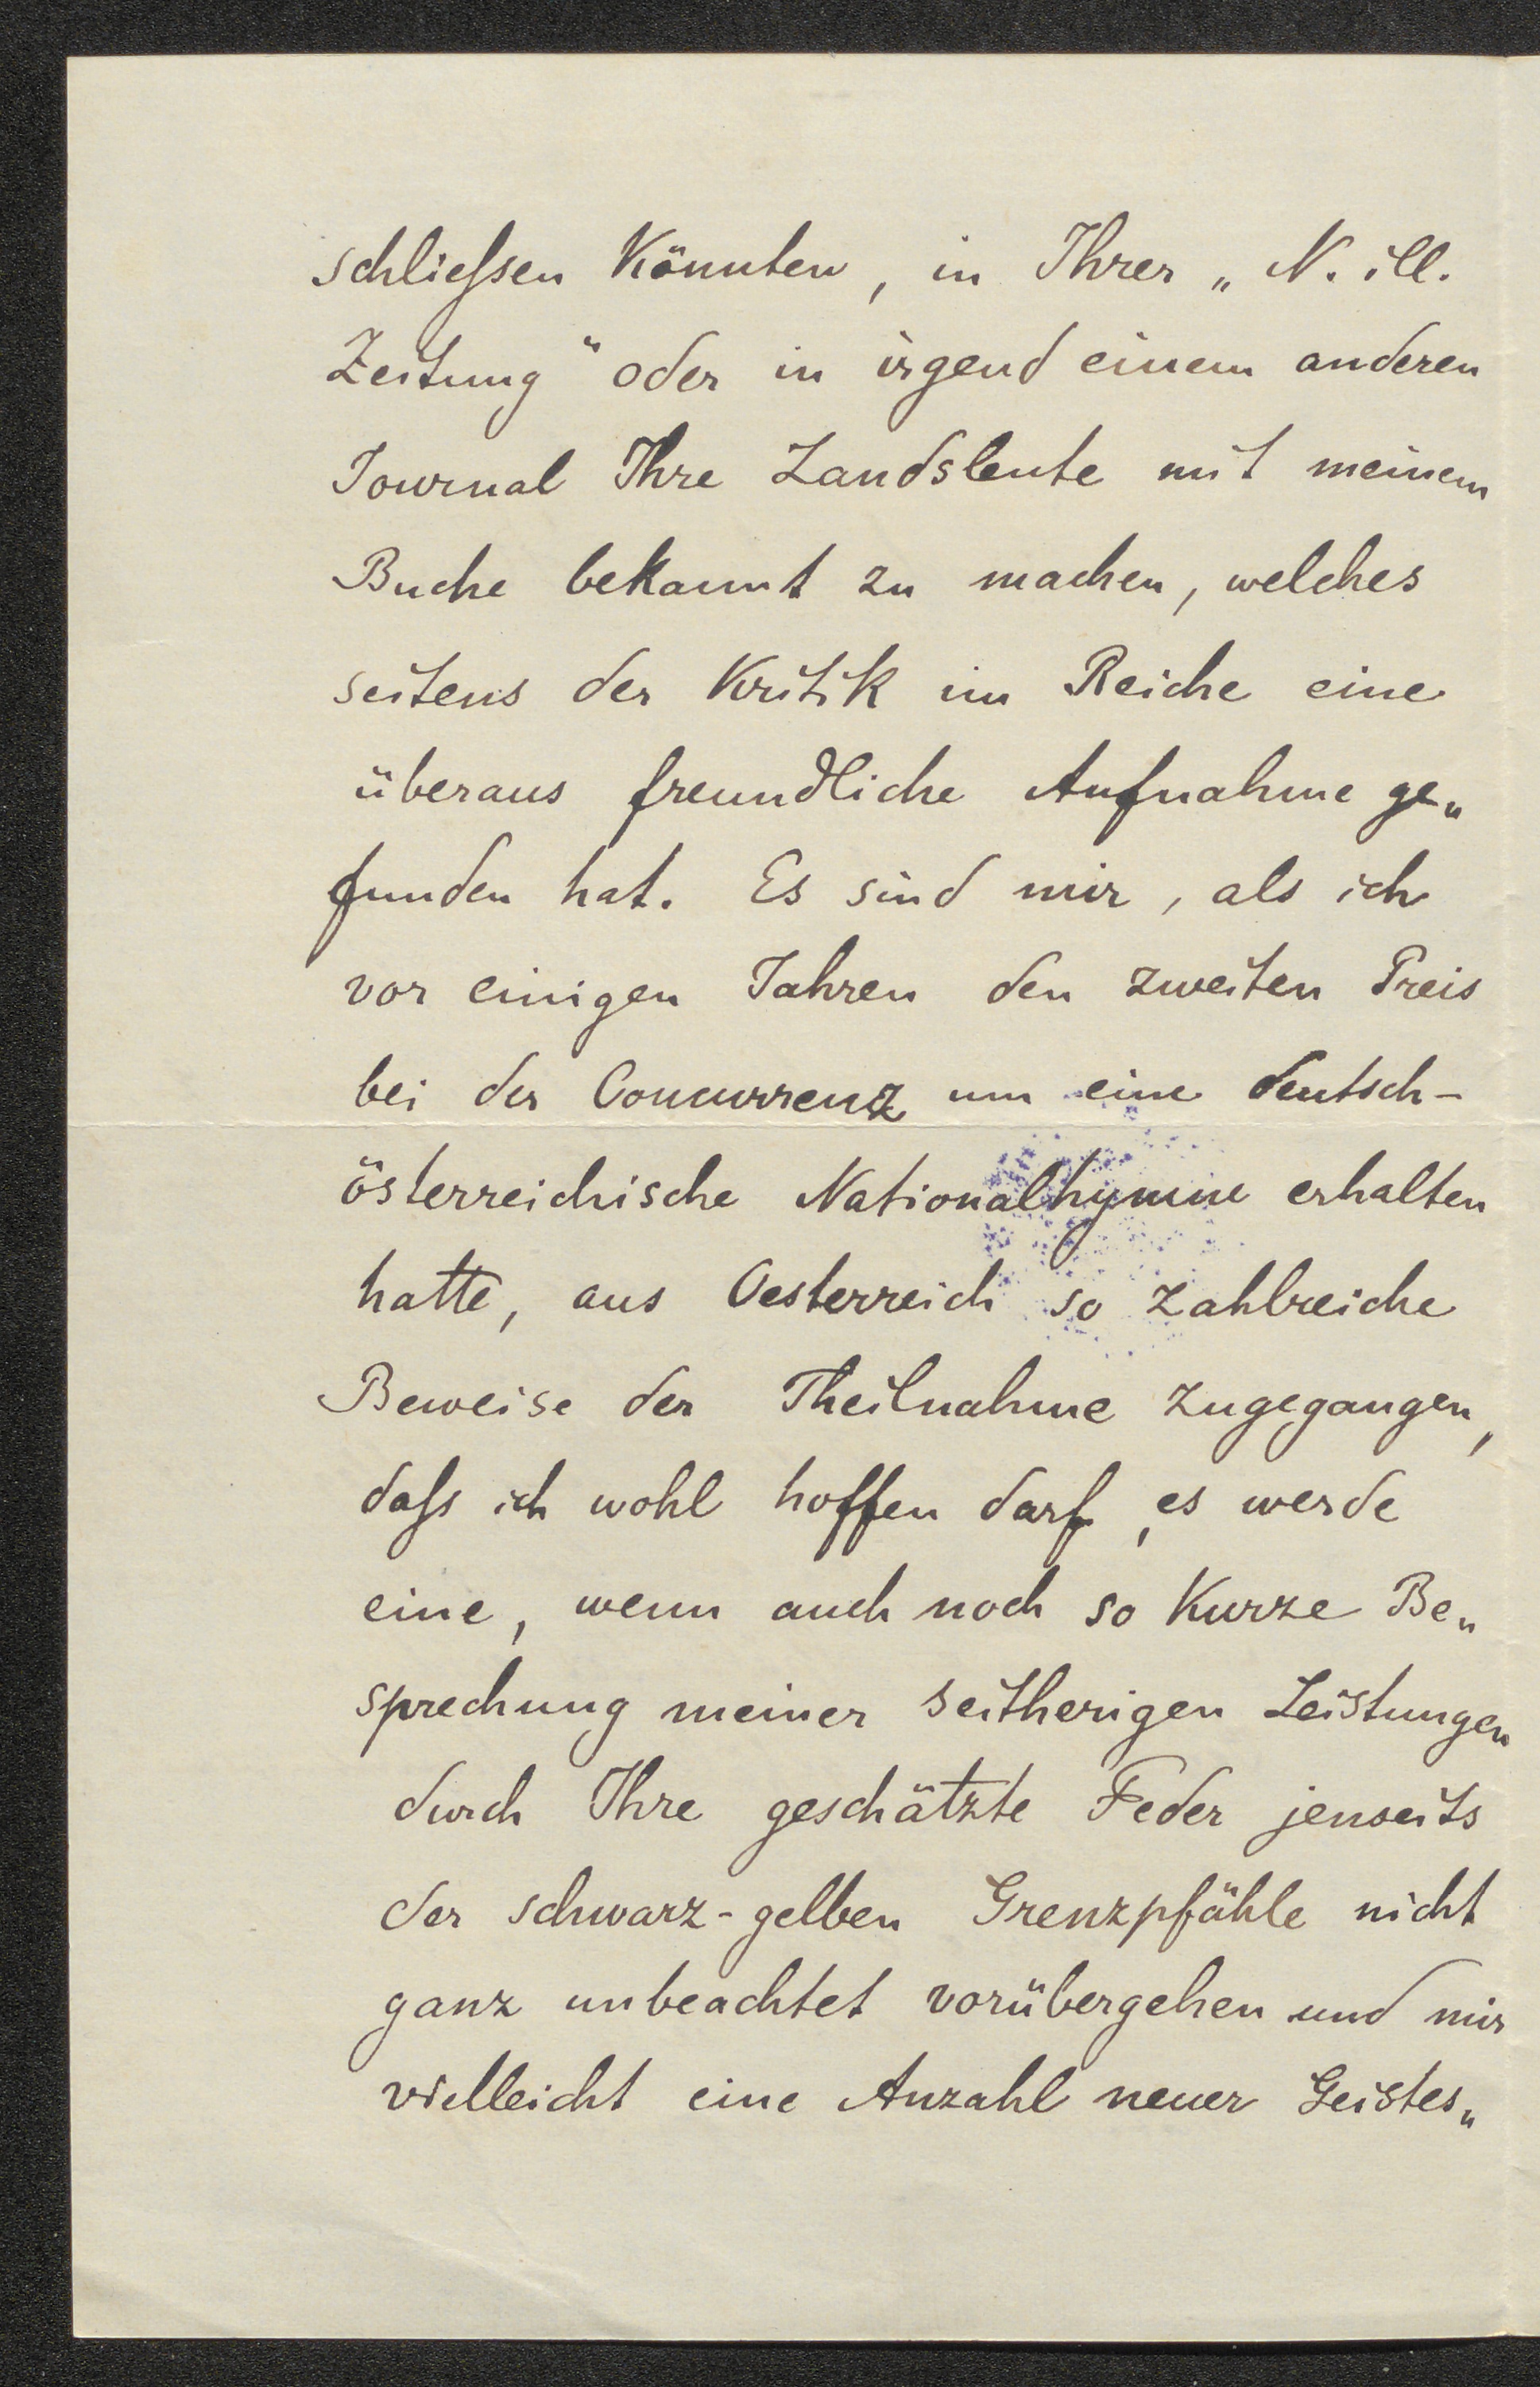 schließsen könnten, in Ihrer „N. ill.
Zeitung“ oder in irgend einem anderen
Journal Ihre Landsleute mit meinem
Buche bekannt zu machen, welches
seitens der Kritik im Reiche eine
überaus freundliche Aufnahme ge„
funden hat. Es sind mir, als ich
vor einigen Jahren den zweiten Preis
bei der Concurrenz um eine deutsch-
österreichische Nationalhymne erhalten
hatte, aus Oesterreich so zahlreiche
Beweise der Theilnahme zugegangen,
daſs ich wohl hoffen darf, es werde
eine, wenn auch noch so kurze Be„
sprechung meiner seitherigen Leistungen
durch Ihre geschätzte Feder jenseits
der schwarz-gelben Grenzpfähle nicht
ganz unbeachtet vorübergehen und mir
vielleicht eine Anzahl neuer Geistes„